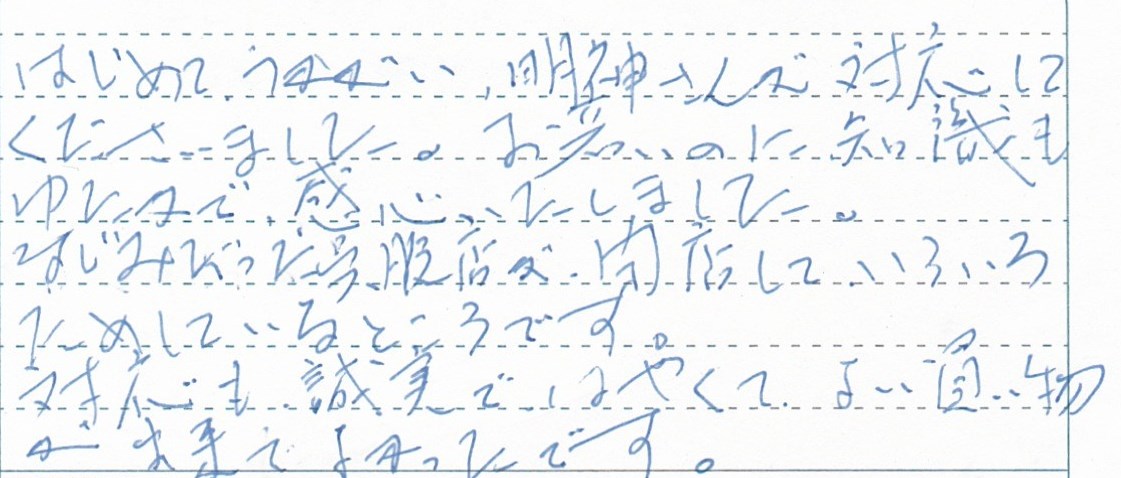 はじめて、うかがい、明神さんが対応して
くださいました。お若いのに知識も
ゆたかで、感心いたしました。
なじみだった呉服店が、閉店して、いろいろ
ためしているところです。
対応も、誠実で、はやくて、よい買い物
が出来てよかったです。